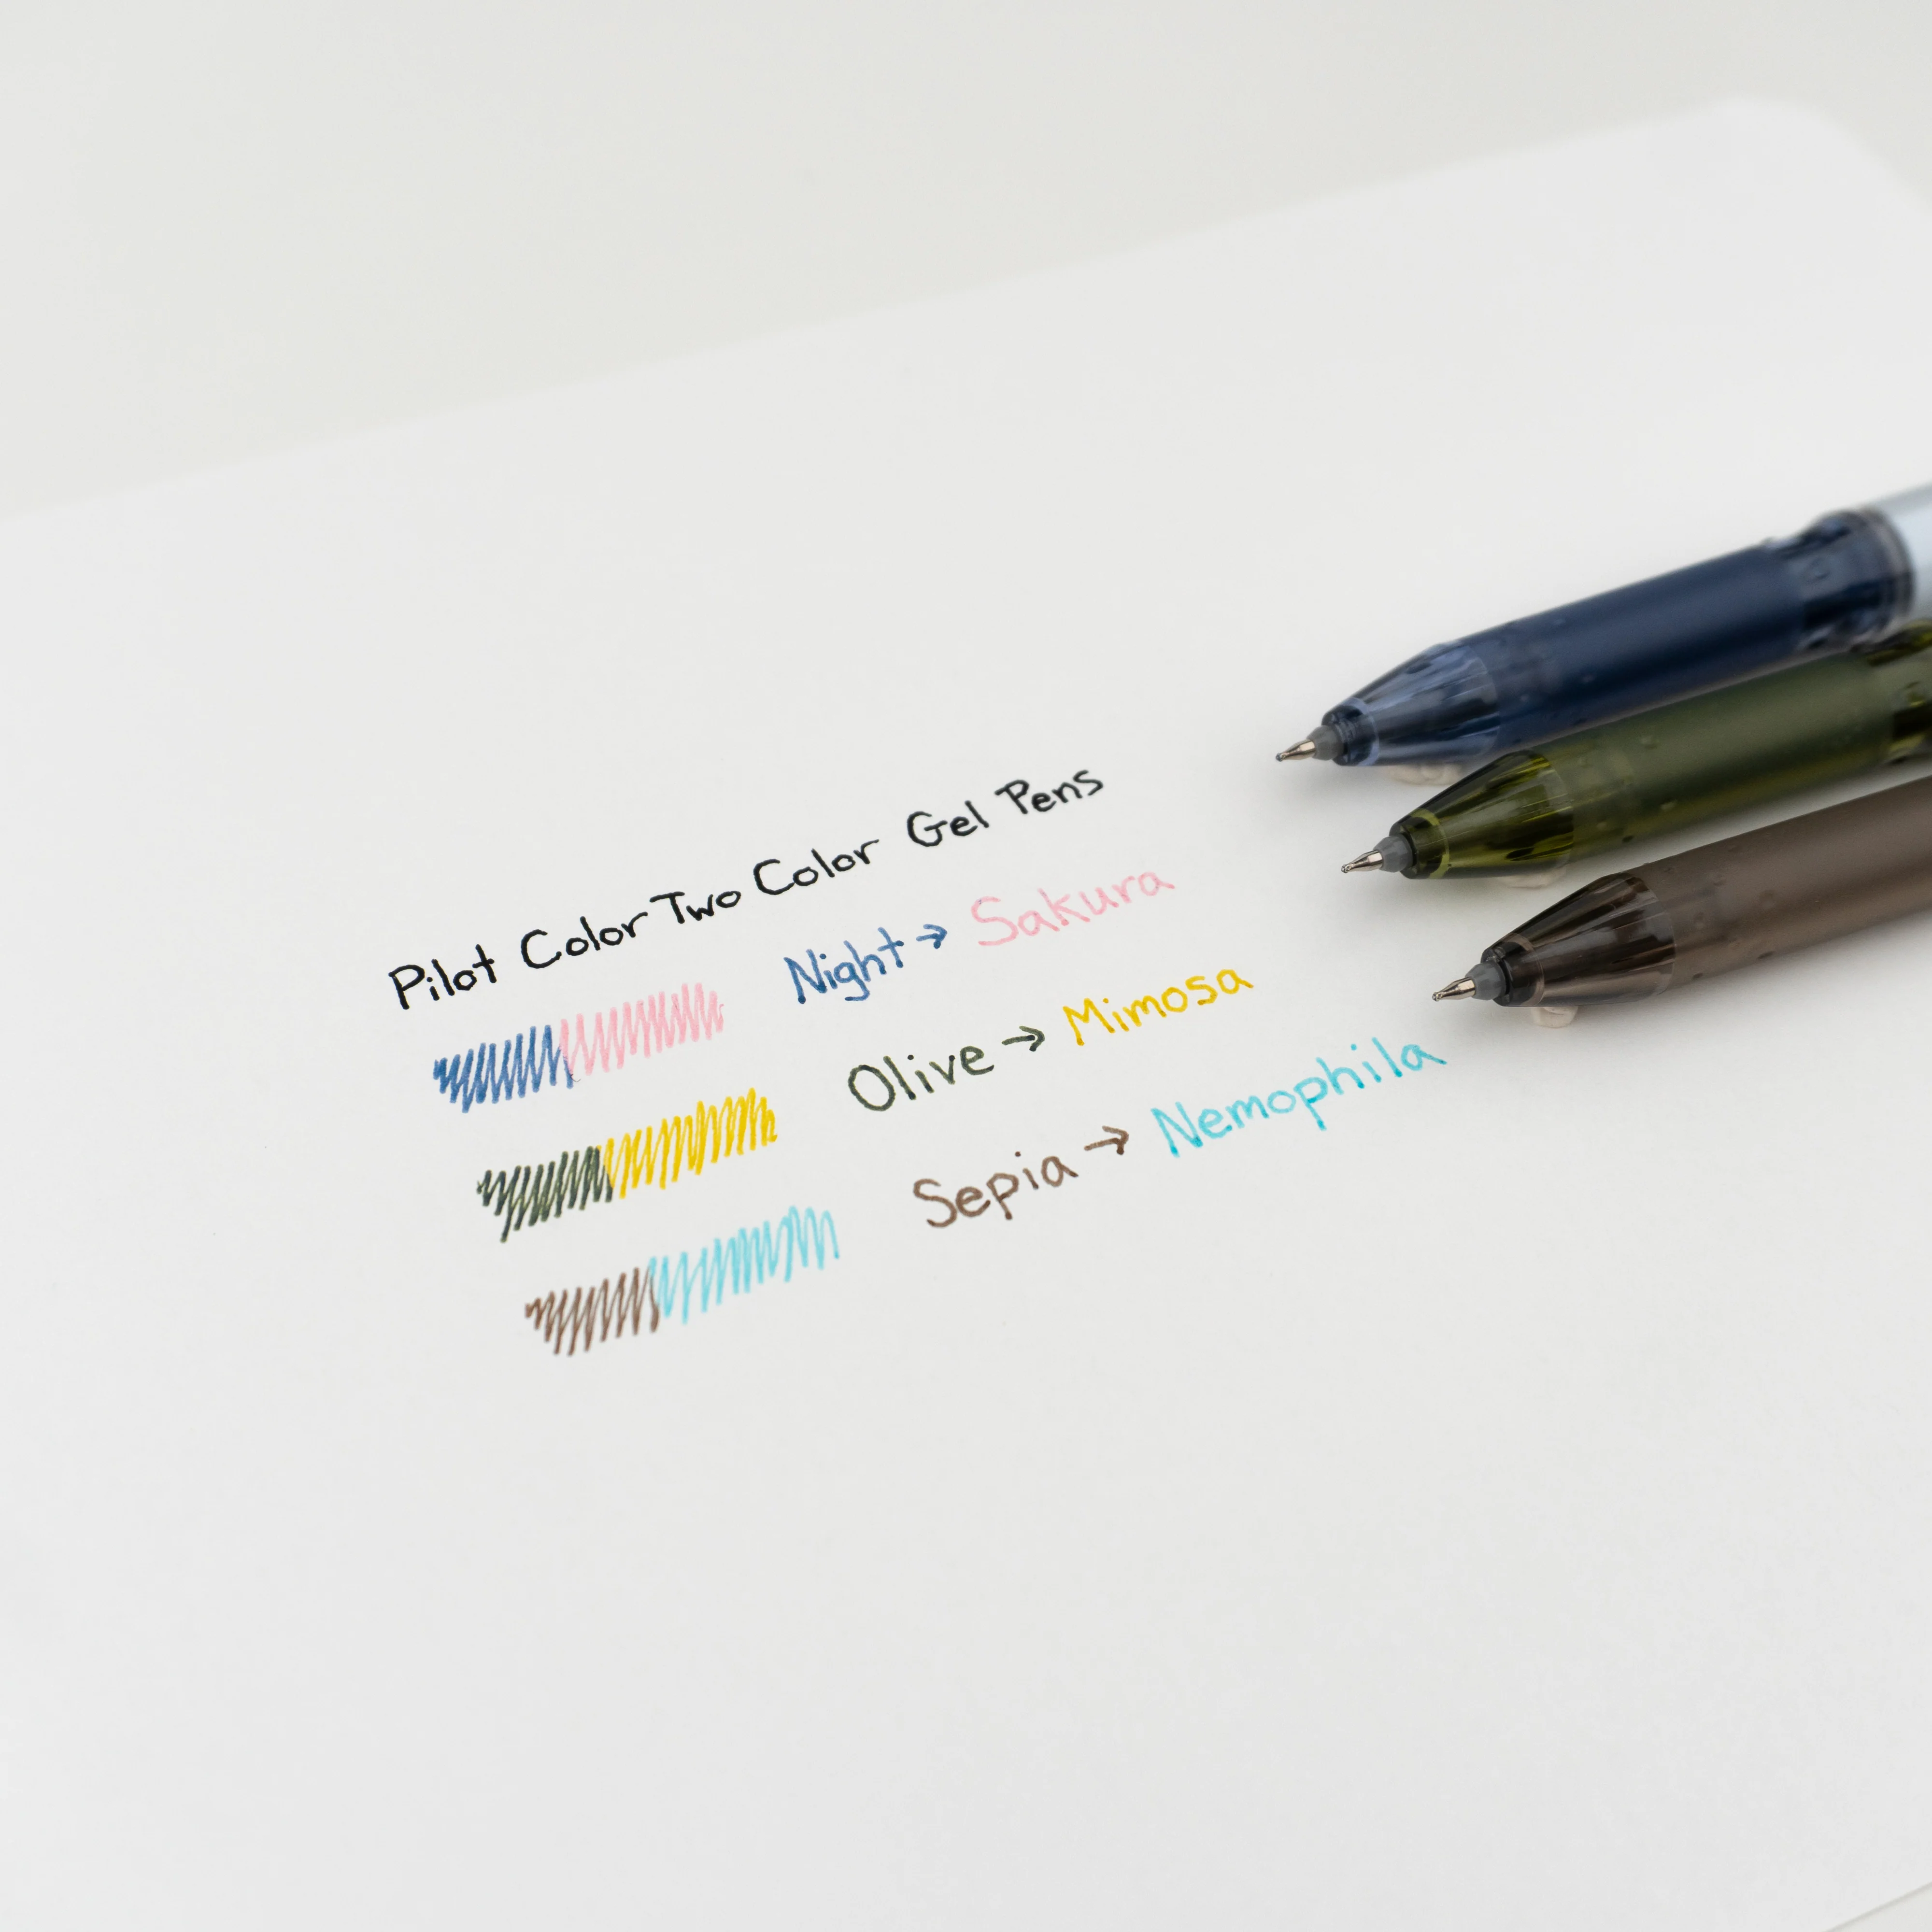 Pilot Color Two Color Gel Pens
Night → Sakura
Olive → Mimosa
Sepia → Nemophila